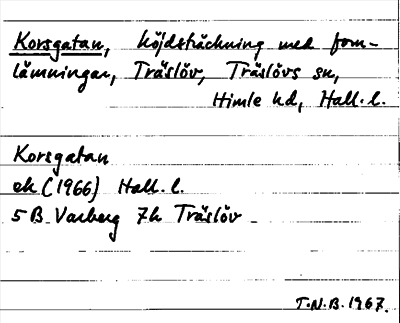 Korsgatan, höjdsträckning med forn-
lämningar, Träslöv, Träslövs sn,
Himle hd, Hall. l.
Korsgatan
ek (1966) Hall. l.
5 B Varberg 7h Träslöv
T.N.B. 1967.